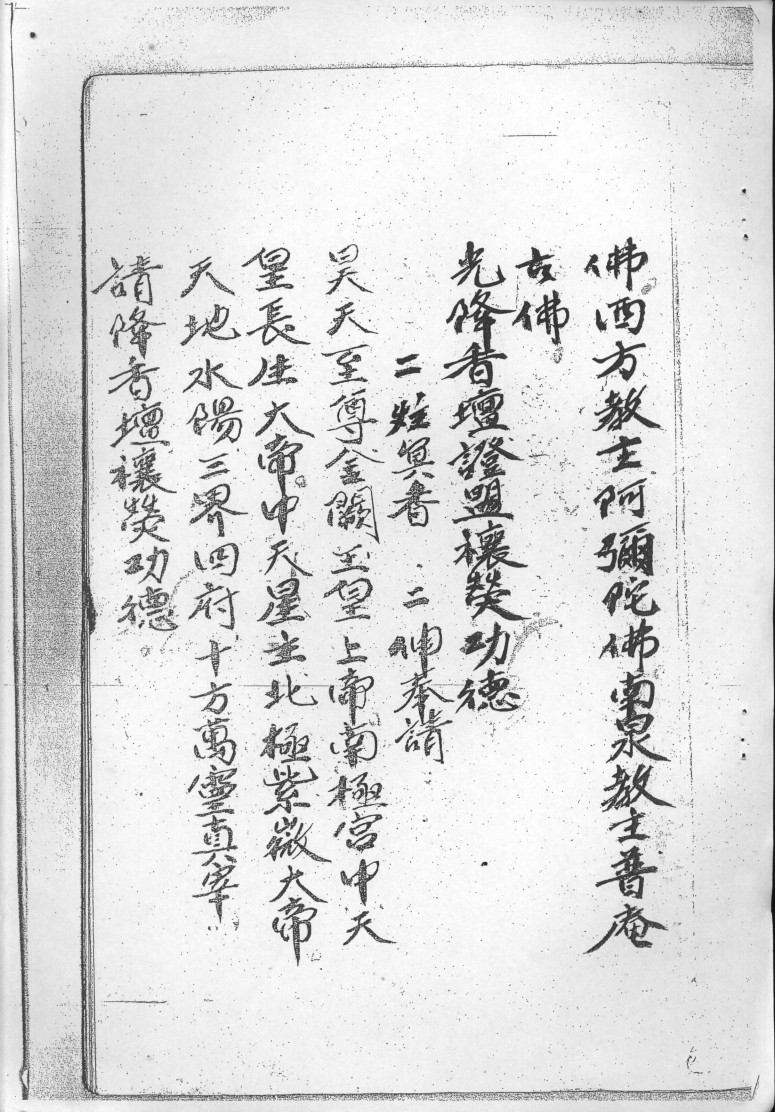 佛西方教主阿彌陀佛南泉教主普庵
古佛
光降香壇證盟禳熒功德
二炷冥香 二伸奉請
昊天至尊金闕玉皇上帝南極宮中天
皇長生大帝中天星主北極紫微大帝
天地水陽三界四府十方萬靈真宰
請降香壇禳熒功德